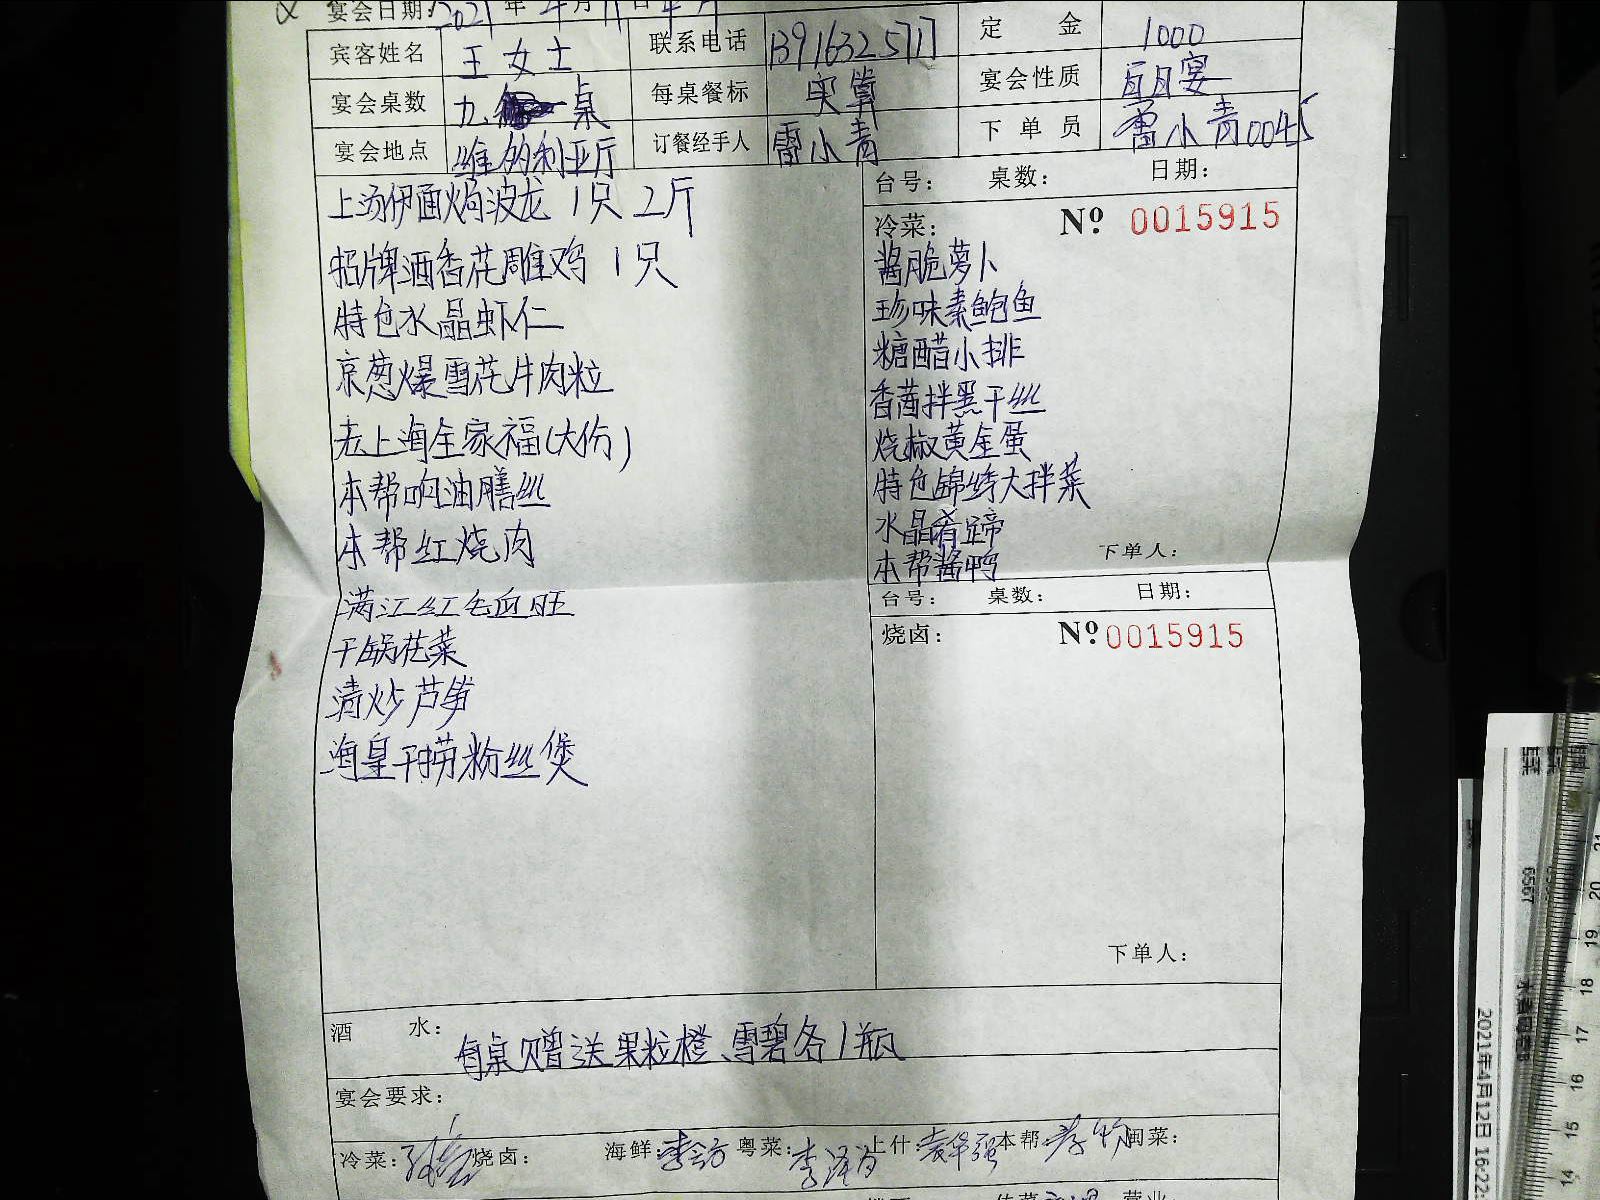 宴会日期: 2021年4月11日
宾客姓名 王女士 联系电话 13916325717 定金 1000
宴会桌数 九 桌 每桌餐标 实算 宴会性质 百日宴
宴会地点 维多利亚厅 订餐经手人 雷小青 下单员 雷小青0045
台号: 桌数: 日期:
上汤伊面焗波龙 1只 2斤
招牌酒香花雕鸡 1只
特色水晶虾仁
京葱爆雪花牛肉粒
老上海全家福(大份)
本帮响油膳丝
本帮红烧肉
满江红毛血旺
干锅花菜
清炒芦笋
海皇干捞粉丝煲
冷菜: Nº 0015915
酱脆萝卜
珍味素鲍鱼
糖醋小排
香茜拌黑干丝
烧椒黄金蛋
特色锦绣大拌菜
水晶肴蹄
本帮酱鸭
下单人:
台号: 桌数: 日期:
烧卤: Nº 0015915
下单人:
酒水: 每桌赠送果粒橙、雪碧各1瓶
宴会要求:
冷菜: 烧卤: 海鲜: 粤菜: 上什: 本帮: 闽菜:
2021年4月12日 16:22: